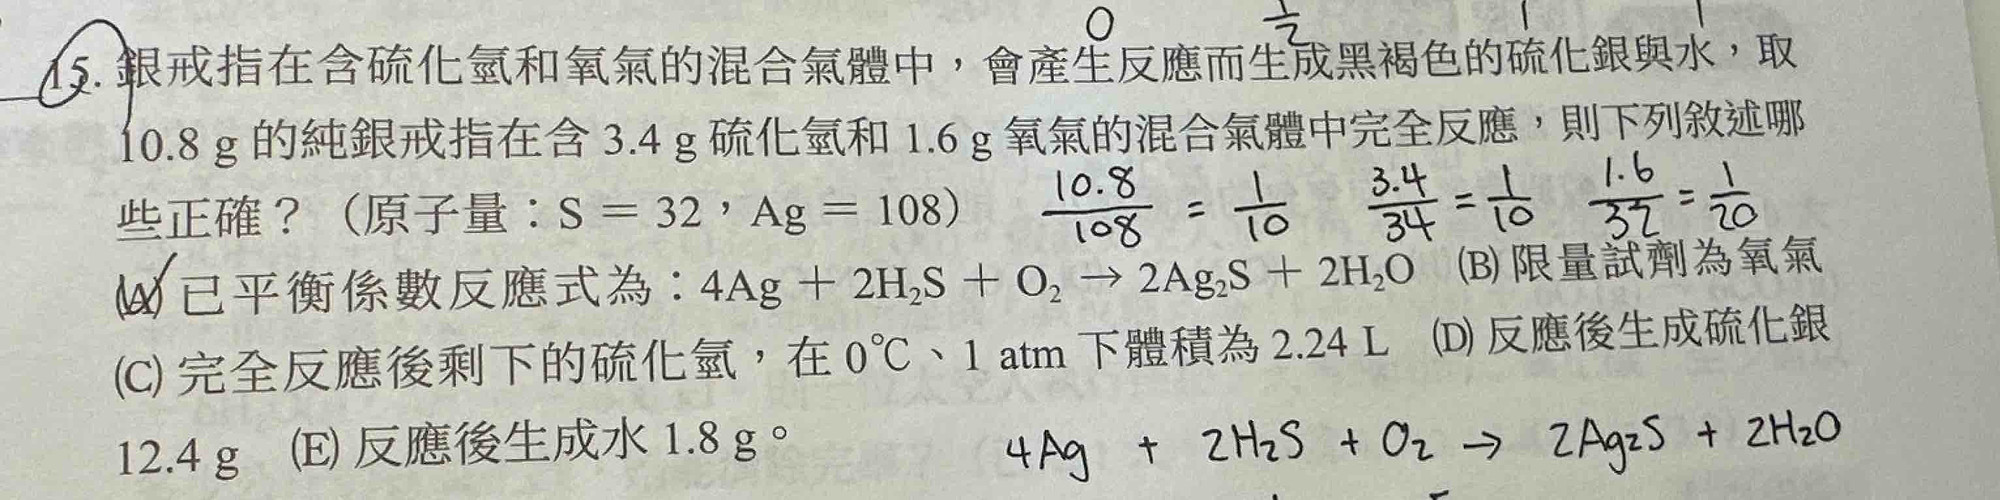 0 1/2 1 1
15. 銀戒指在含硫化氫和氧氣的混合氣體中，會產生反應而生成黑褐色的硫化銀與水，取
10.8 g 的純銀戒指在含 3.4 g 硫化氫和 1.6 g 氧氣的混合氣體中完全反應，則下列敘述哪
些正確？（原子量：S = 32，Ag = 108） 10.8/108 = 1/10 3.4/34 = 1/10 1.6/32 = 1/20
(A) 已平衡係數反應式為：4Ag + 2H₂S + O₂ → 2Ag₂S + 2H₂O (B) 限量試劑為氧氣
(C) 完全反應後剩下的硫化氫，在 0℃、1 atm 下體積為 2.24 L (D) 反應後生成硫化銀
12.4 g (E) 反應後生成水 1.8 g。 4Ag + 2H₂S + O₂ → 2Ag₂S + 2H₂O